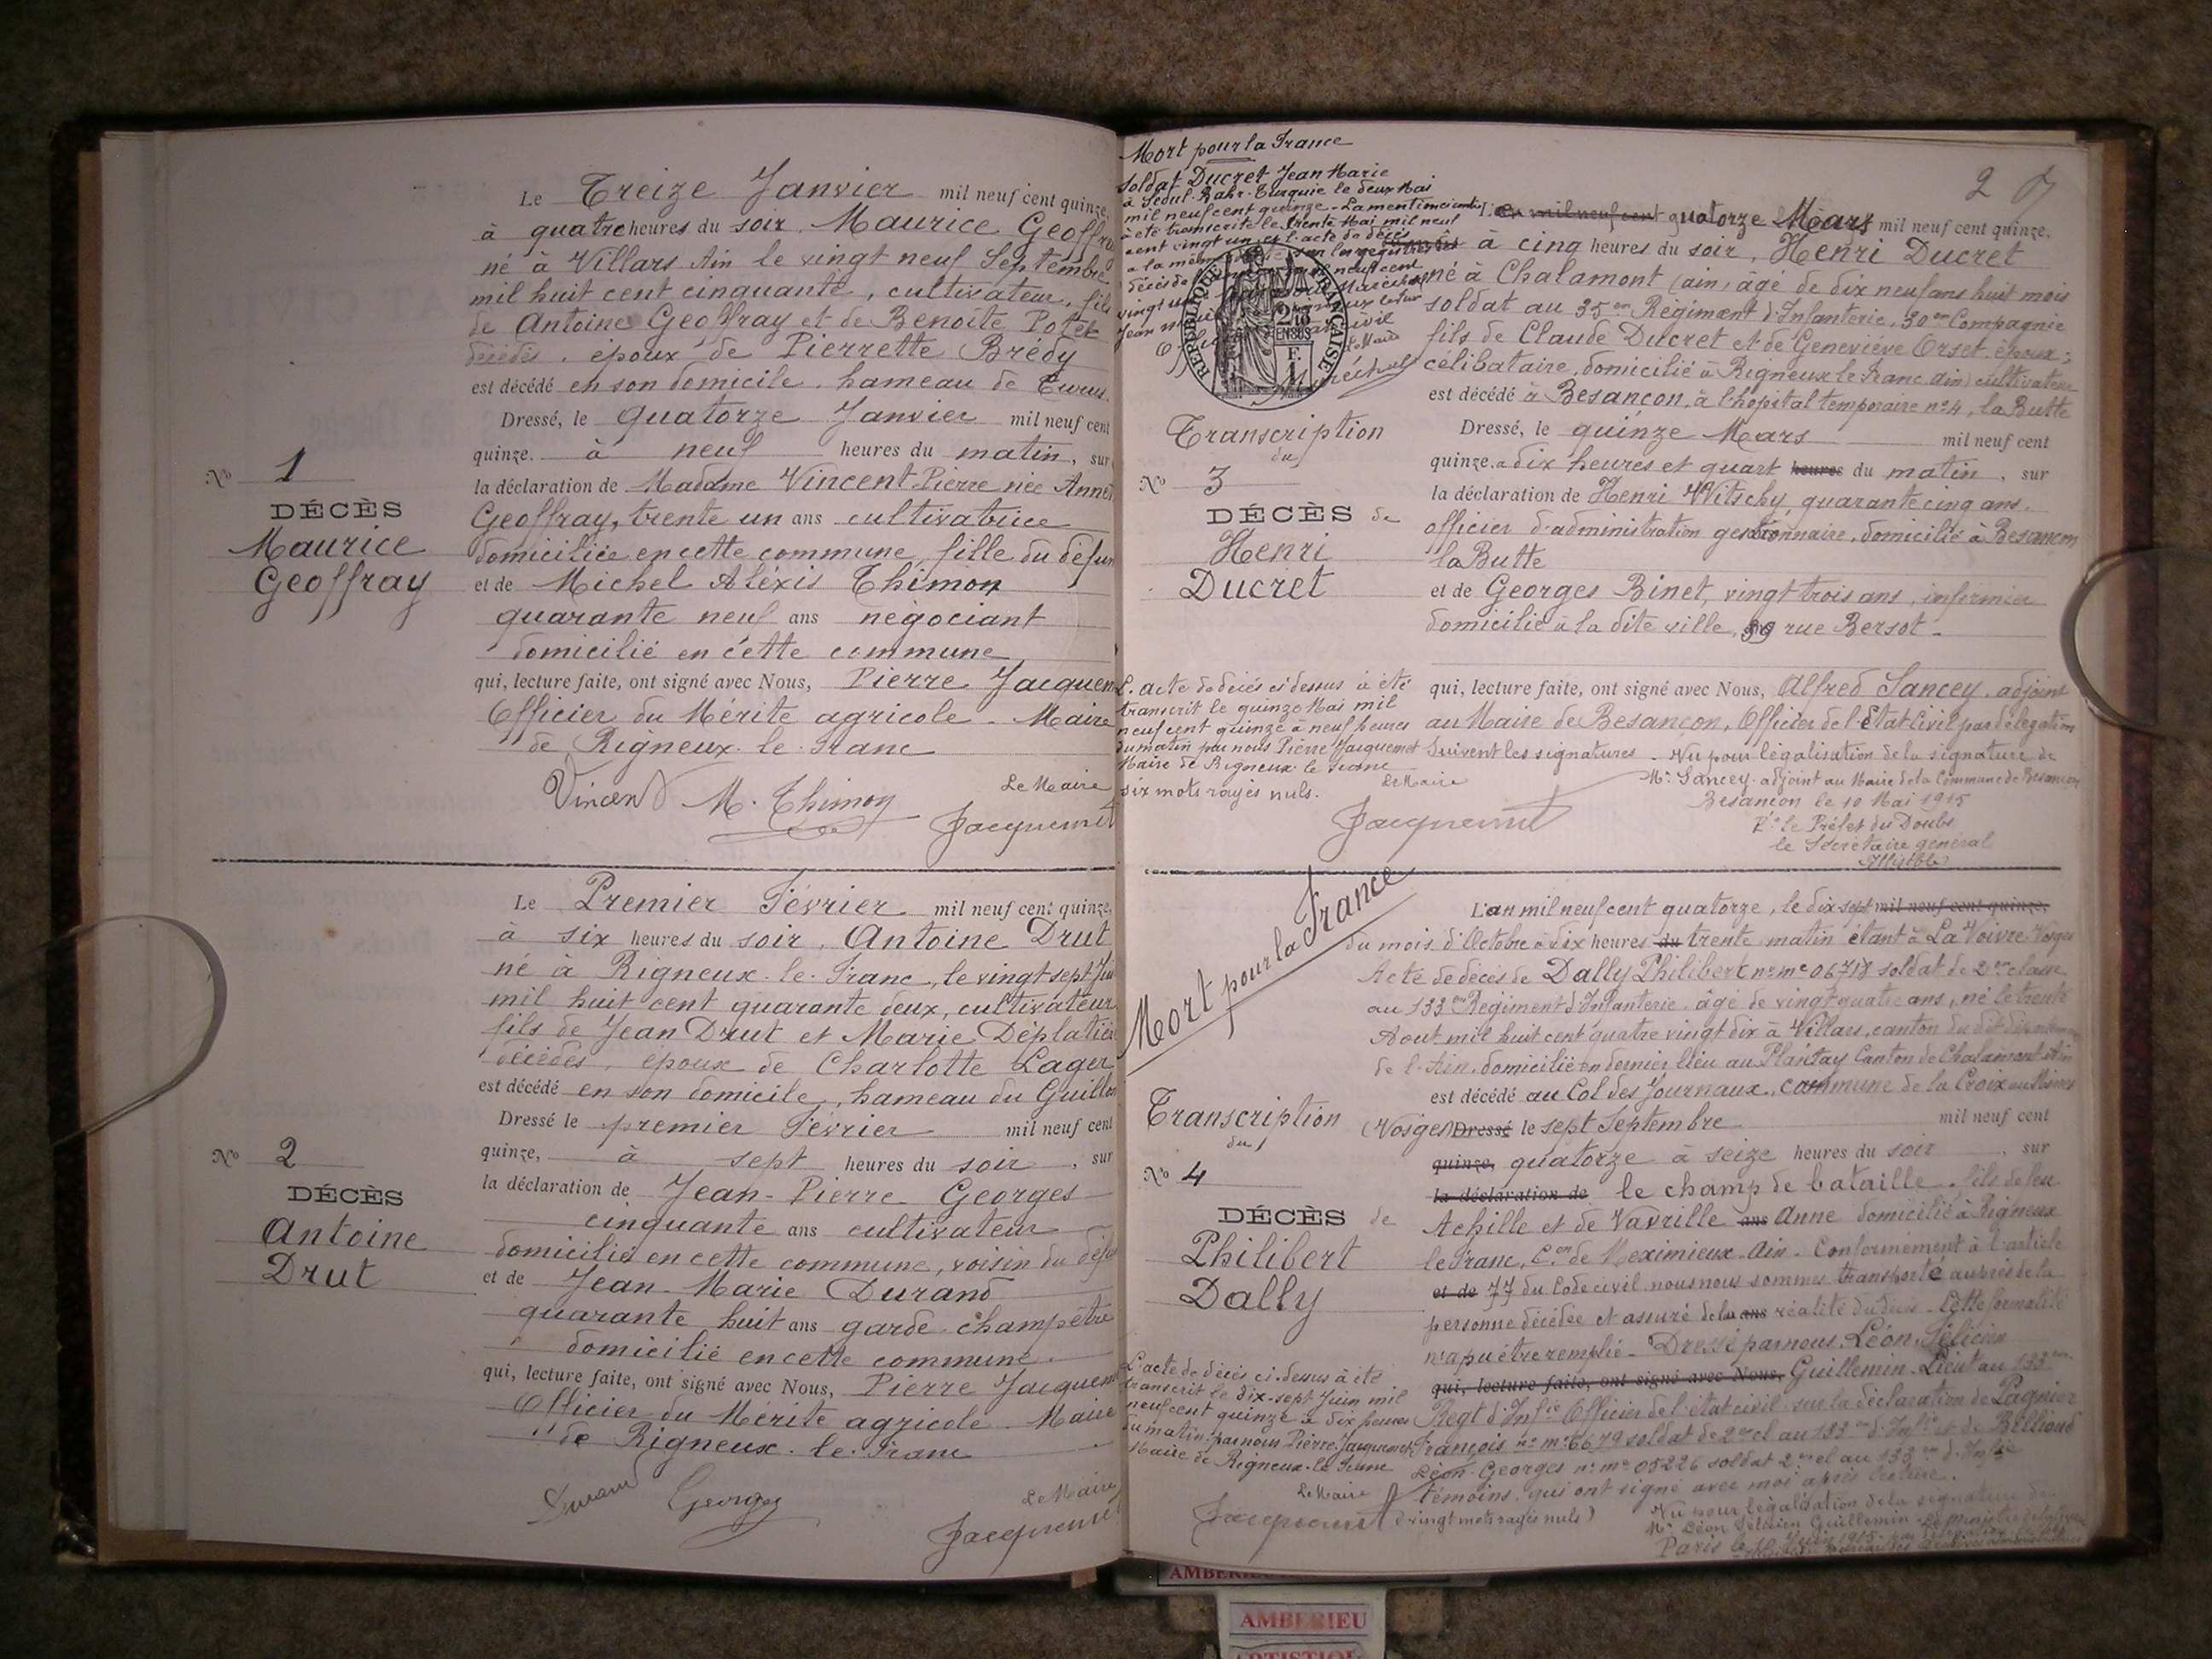 Le Treize Janvier mil neuf cent quinze,
à quatre heures du soir, Maurice Geoffray
né à Villars Ain le vingt neuf Septembre
mil huit cent cinquante, cultivateur, fils
de Antoine Geoffray et de Benoîte Potet
décédés, époux de Pierrette Brédy
est décédé en son domicile, hameau de
Dressé, le quatorze Janvier mil neuf cent
quinze. à neuf heures du matin, sur
la déclaration de Madame Vincent Pierre née Anne
Geoffray, trente un ans cultivatrice
domiciliée en cette commune, fille du défun
et de Michel Aléxis Thimon
quarante neuf ans négociant
domicilié en cette commune
qui, lecture faite, ont signé avec Nous, Pierre Jacquem
Officier du Mérite agricole - Maire
de Rigneux-le-Franc
Le Maire
Vincent M. Thimon Jacquemet
No 1
DÉCÈS
Maurice
Geoffray
Le Premier Février mil neuf cent quinze,
à six heures du soir, Antoine Drut
né à Rigneux-le-Franc, le vingt sept
mil huit cent quarante deux, cultivateur
fils de Jean Drut et Marie
décédés, époux de Charlotte Lager
est décédé en son domicile, hameau du Guillon
Dressé le premier Février mil neuf cent
quinze, à sept heures du soir, sur
la déclaration de Jean-Pierre Georges
cinquante ans cultivateur
domicilié en cette commune, voisin du défu
et de Jean-Marie Durand
quarante huit ans garde-champêtre
domicilié en cette commune.
qui, lecture faite, ont signé avec Nous, Pierre Jacquem
Officier du Mérite agricole - Maire
de Rigneux-le-Franc
Le Maire
Durand Georges Jacquemet
No 2
DÉCÈS
Antoine
Drut
2
Mort pour la France
soldat Ducret Jean Marie
à Sedul-Bahr-Turquie le deux Mai
mil neuf cent quinze - La mention
a été transcrite le trente Mai mil neuf
cent vingt un
RÉPUBLIQUE FRANÇAISE
Le Maire
Maréchal
Transcription
du
No 3
DÉCÈS de
Henri
Ducret
L'acte de décès ci-dessus a été
transcrit le quinze Mai mil
neuf cent quinze à neuf heures
du matin par nous Pierre Jacquemet
Maire de Rigneux-le-Franc
six mots rayés nuls.
Le Maire
Jacquemet
quatorze Mars mil neuf cent quinze,
à cinq heures du soir, Henri Ducret
né à Chalamont (ain) âgé de dix neuf ans huit mois
soldat au 35em Régiment d'Infanterie, 30em Compagnie
fils de Claude Ducret et de Geneviève Orset, époux;
célibataire, domicilié à Rigneux le Franc (Ain) cultivateur
est décédé à Besançon, à l'hôpital temporaire no 4, la Butte
Dressé, le quinze Mars mil neuf cent
quinze. a dix heures et quart heures du matin, sur
la déclaration de Henri Witschy, quarante cinq ans.
officier d'administration gestionnaire, domicilié à Besançon
la Butte
et de Georges Binet, vingt trois ans, infirmier
domicilié à la dite ville, 39 rue Bersot -
qui, lecture faite, ont signé avec Nous, Alfred Sancey, adjoint
au Maire de Besançon, Officier de l'Etat Civil par délégation
Suivent les signatures - Vu pour légalisation de la signature de
Mr. Sancey adjoint au Maire de la Commune de Besançon
Besançon le 10 Mai 1915
Pr le Préfet du Doubs
le Secrétaire général
Mort pour la France
Transcription
du
No 4
DÉCÈS de
Philibert
Dally
L'acte de décès ci-dessus a été
transcrit le dix-sept Juin mil
neuf cent quinze à dix heures
du matin par nous Pierre Jacquemet
Maire de Rigneux-le-Franc
Le Maire
Jacquemet
L'an mil neuf cent quatorze, le dix-sept mil neuf cent quinze,
du mois d'Octobre à dix heures du trente matin étant à La Voivre Vosges
Acte de décès de Dally Philibert no me 06718 soldat de 2em classe
au 133em Régiment d'Infanterie, âgé de vingt quatre ans, né le trente
Aout mil huit cent quatre vingt dix à Villars, canton du dit
de l'Ain, domicilié en dernier lieu au Plantay Canton de Chalamont Ain
est décédé au Col des Journaux, commune de la Croix aux Mines
(Vosges) Dressé le sept Septembre mil neuf cent
quinze, quatorze à seize heures du soir, sur
la déclaration de le champ de bataille, fils de feu
Achille et de Vavrille ans Anne domicilié à Rigneux
le Franc, Con de Meximieux-Ain - Conformément à l'article
et de 77 du Code civil nous nous sommes transporté auprès de la
personne décédée et assuré de la ans réalité du décès - Cette formalité
n'a pu être remplie - Dressé par nous, Léon Félicien
qui, lecture faite, ont signé avec Nous, Guillemin - Lieut au 133em
Regt d'Infie Officier de l'état civil sur la déclaration de Pagnier
François no me 6679 soldat de 2me cl au 133em d'Infie et de Billioud
Léon Georges no me 05226 soldat 2me cl au 133em d'Infie
témoins, qui ont signé avec moi après lecture.
(vingt mots rayés nuls)
Vu pour légalisation de la signature de
Mr. Léon Félicien Guillemin
Paris le 10 Juin 1915
AMBERIEU